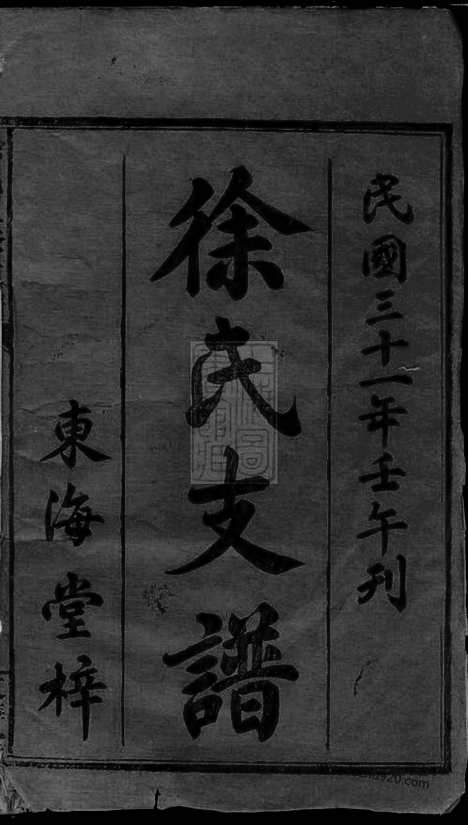 民國三十一年壬午刊
徐氏支譜
東海堂梓